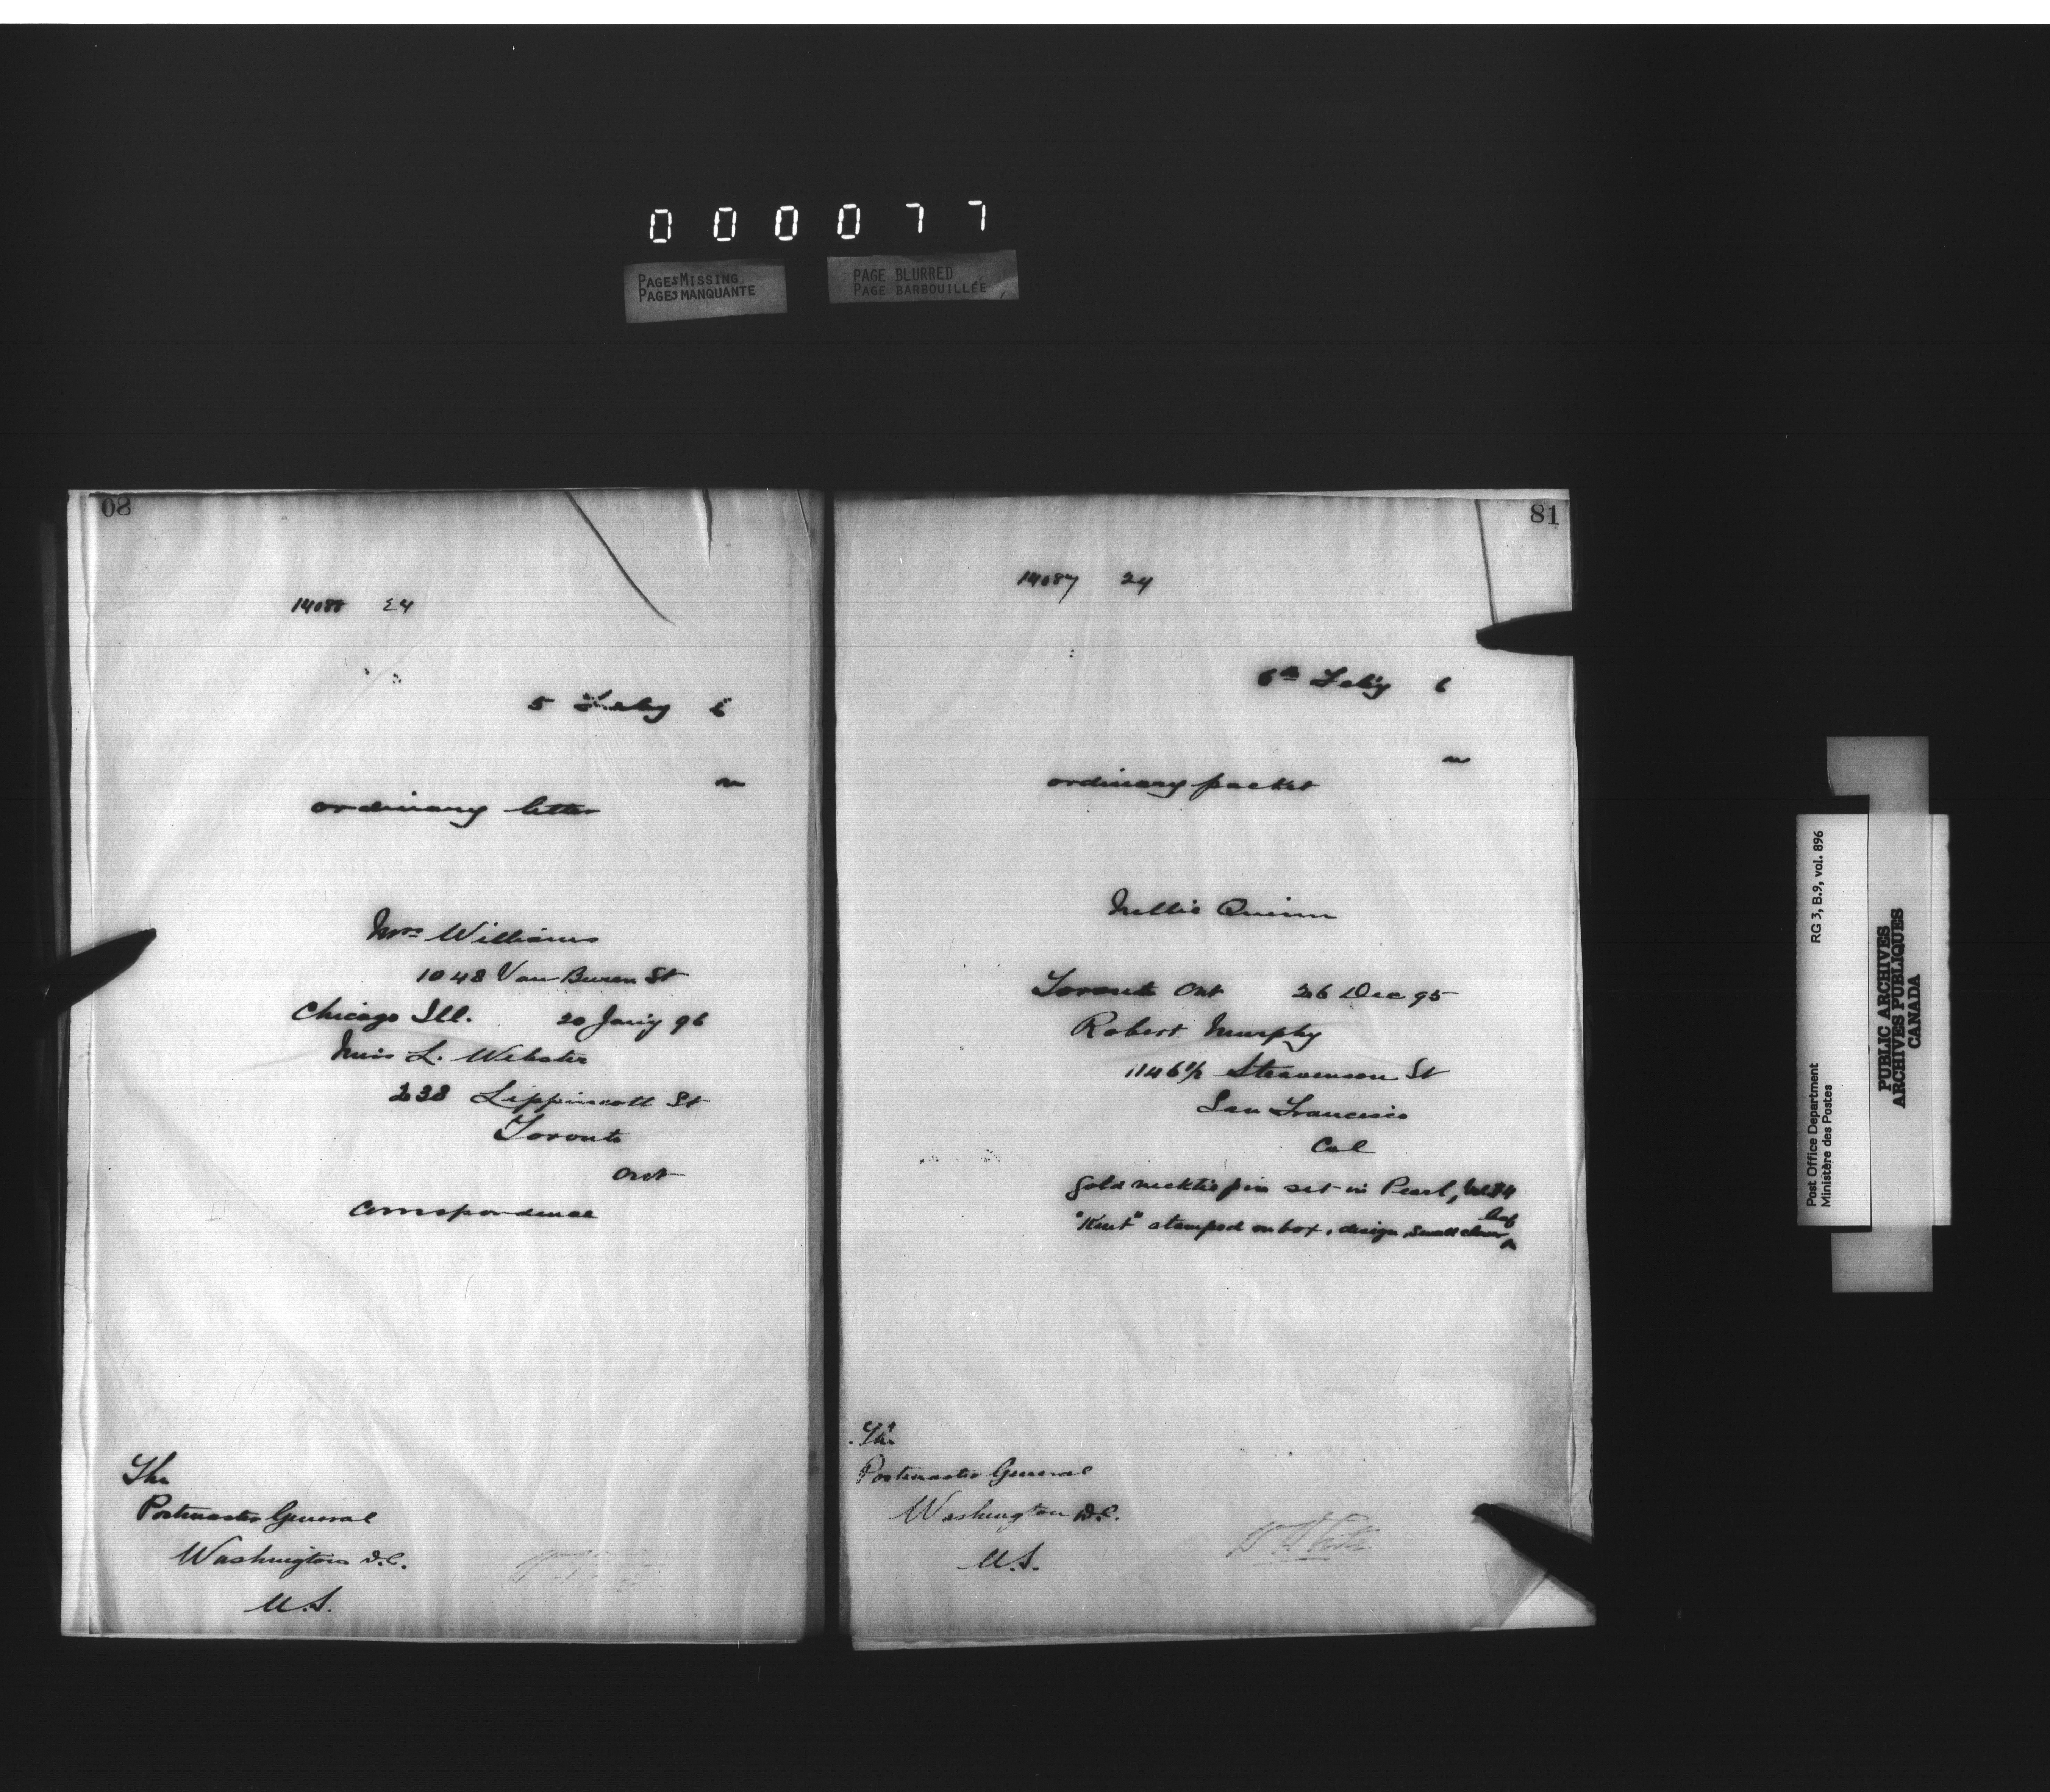 0 0 0 0 7 7
PAGES MISSING
PAGES MANQUANTE
PAGE BLURRED
PAGE BARBOUILLÉE
80
14088 24
5 Feby 6
n
ordinary letter
Mrs Williams
1048 Van Buren St
Chicago Ill. 20 Jany 96
Miss L. Webster
238 Lippincott St
Toronto
Ont
Correspondence
The
Postmaster General
Washington D.C.
U.S.
81
14087 24
6th Feby 6
n
ordinary packet
Nellie Quinn
Toronto Ont 26 Dec 95
Robert Murphy
1146½ Steavenson St
San Francisco
Cal
Gold necktie pin set in Pearl,
"Kent" stamped on box, design, small clover leaf
The
Postmaster General
Washington D.C.
U.S.
RG 3, B.9, vol. 896
Post Office Department
Ministère des Postes
PUBLIC ARCHIVES
ARCHIVES PUBLIQUES
CANADA